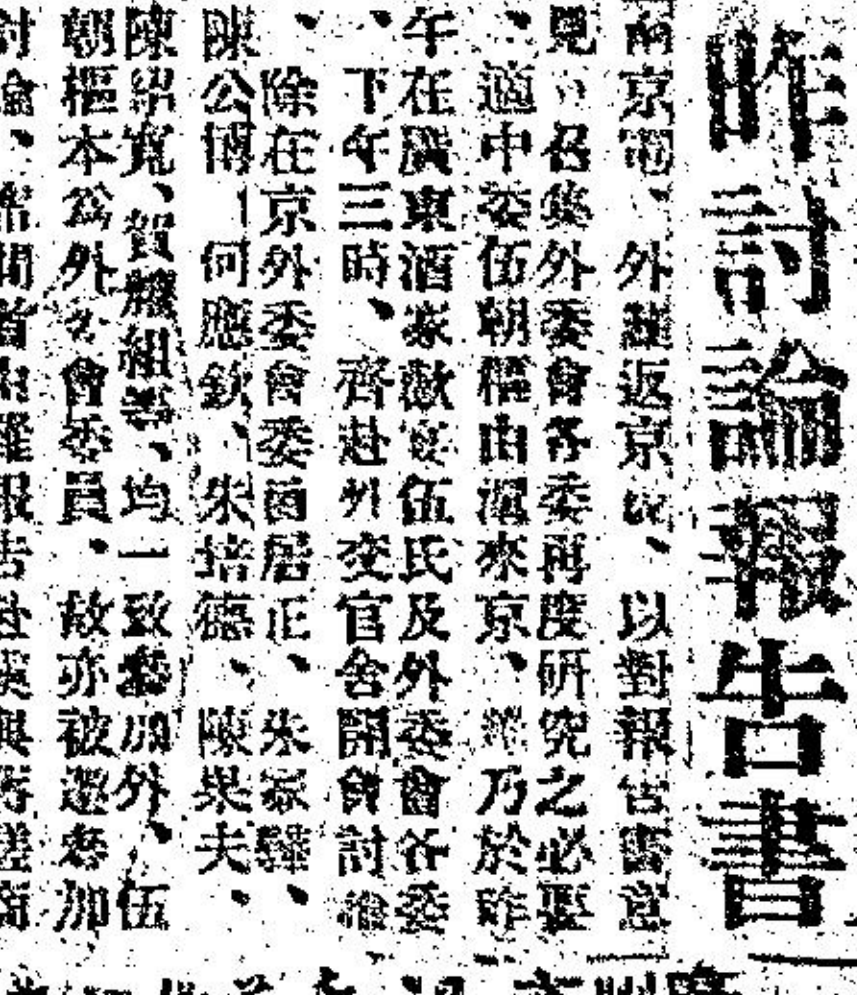 昨討論報告書
南京電、外羅返京後、以對報告書意
見、召集外委會各委再度研究之必要
、適中委伍朝樞由滬來京、羅乃於昨
午在廣東酒家歡宴伍氏及外委會各委
、下午三時、齊赴外交官舍開會討論
、除在京外委會委員居正、朱家驊、
陳公博、何應欽、朱培德、陳果夫、
陳紹寬、賀耀組等、均一致參加外、伍
朝樞本為外委會委員、故亦被邀參加
討論、席間首由羅報告赴漢與蔣磋商